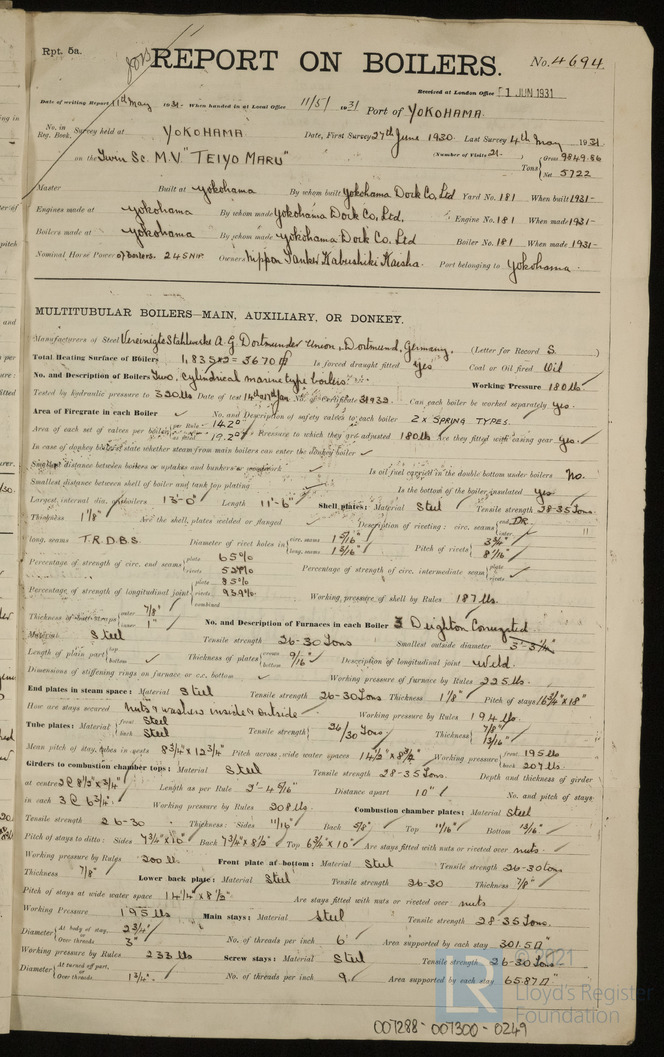 Rpt. 5a.
REPORT ON BOILERS.
No. 4694.
Received at London Office 1 JUN 1931
Date of writing Report 11th May 1931 When handed in at Local Office 11/5/1931 Port of YOKOHAMA
No. in Reg. Book. Survey held at YOKOHAMA Date, First Survey 27th June 1930 Last Survey 4th May 1931
(Number of Visits 21
on the Twin Sc. M.V. "TEIYO MARU" Tons Gross 9849.86 Net 5722
Master Built at Yokohama By whom built Yokohama Dock Co. Ltd Yard No. 181 When built 1931
Engines made at Yokohama By whom made Yokohama Dock Co. Ltd. Engine No. 181 When made 1931
Boilers made at Yokohama By whom made Yokohama Dock Co. Ltd Boiler No. 181 When made 1931
Nominal Horse Power of Boilers 245 NHP Owners Nippon Tanker Kabushiki Kaisha Port belonging to Yokohama
MULTITUBULAR BOILERS—MAIN, AUXILIARY, OR DONKEY.
Manufacturers of Steel Vereinigte Stahlwerke A.G. Dortmunder Union, Dortmund, Germany. (Letter for Record S.)
Total Heating Surface of Boilers 1,835 x 2 = 3670 Is forced draught fitted Yes Coal or Oil fired Oil
No. and Description of Boilers Two, cylindrical marine type boilers Working Pressure 180 lbs
Tested by hydraulic pressure to 320 lbs Date of test No. of Certificate Can each boiler be worked separately yes
Area of Firegrate in each Boiler No. and Description of safety valves to each boiler 2 x SPRING TYPES
Area of each set of valves per boiler per Rule 14.2 as fitted 19.2 Pressure to which they are adjusted 180 lbs Are they fitted with easing gear Yes.
In case of donkey boilers state whether steam from main boilers can enter the donkey boiler
Smallest distance between boilers or uptakes and bunkers or woodwork Is oil fuel carried in the double bottom under boilers No.
Smallest distance between shell of boiler and tank top plating Is the bottom of the boiler insulated Yes
Largest internal dia. of boilers 13'-0" Length 11'-6" Shell plates: Material Steel Tensile strength 28-35 Tons
Thickness 1 1/8" Are the shell plates welded or flanged Description of riveting: circ. seams end DR. inter.
long. seams T.R.D.B.S. Diameter of rivet holes in circ. seams 1 5/16" long. seams 1 3/16" Pitch of rivets 3 3/4" 8 1/16"
Percentage of strength of circ. end seams plate 65% rivets Percentage of strength of circ. intermediate seam plate rivets
Percentage of strength of longitudinal joint plate 85% rivets combined Working pressure of shell by Rules 187 lbs.
Thickness of butt straps outer 7/8" inner 1" No. and Description of Furnaces in each Boiler 3 Deighton Corrugated
Material Steel Tensile strength 26-30 Tons Smallest outside diameter
Length of plain part top bottom Thickness of plates crown bottom 9/16" Description of longitudinal joint Weld.
Dimensions of stiffening rings on furnace or c.c. bottom Working pressure of furnace by Rules 225 lbs.
End plates in steam space: Material Steel Tensile strength 26-30 Tons Thickness 1 1/8" Pitch of stays 16 3/4" x 18"
How are stays secured Nuts & washers inside & outside Working pressure by Rules 194 lbs.
Tube plates: Material front Steel back Steel Tensile strength 26/30 Tons Thickness 7/8" 13/16"
Mean pitch of stay tubes in nests 8 3/4" x 12 3/4" Pitch across wide water spaces 14 1/2" x 8 3/4" Working pressure front 195 lbs back 207 lbs.
Girders to combustion chamber tops: Material Steel Tensile strength 28-35 Tons. Depth and thickness of girder
at centre 2 @ 8 1/2" x 3/4" Length as per Rule 2'-4 5/16" Distance apart 10" No. and pitch of stays
in each 3 @ 6 3/4" Working pressure by Rules 208 lbs Combustion chamber plates: Material Steel
Tensile strength 26-30 Thickness: Sides 11/16" Back 5/8" Top 11/16" Bottom 13/16"
Pitch of stays to ditto: Sides 7 3/4" x 10" Back 7 3/4" x 8 1/2" Top 6 3/4" x 10" Are stays fitted with nuts or riveted over nuts
Working pressure by Rules 200 lb. Front plate at bottom: Material Steel Tensile strength 26-30 tons
Thickness 7/8" Lower back plate: Material Steel Tensile strength 26-30 Thickness 7/8"
Pitch of stays at wide water space 14 1/4" x 8 1/2" Are stays fitted with nuts or riveted over nuts
Working Pressure 195 lbs Main stays: Material Steel Tensile strength 28-35 Tons.
Diameter At body of stay, 2 3/4" or Over threads 3" No. of threads per inch 6 Area supported by each stay 301.5
Working pressure by Rules 233 lbs Screw stays: Material Steel Tensile strength 26-30 Tons
Diameter At turned off part, or Over threads 1 3/4" No. of threads per inch 9 Area supported by each stay 65.87
© 2021
LR
Lloyd's Register
Foundation
007288-007300-0249